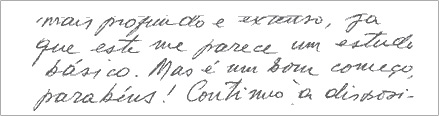 mais profundo e extenso, ja
que este me parece um estudo
básico. Mas é um bom começo,
parabéns! Continuo à disposi-